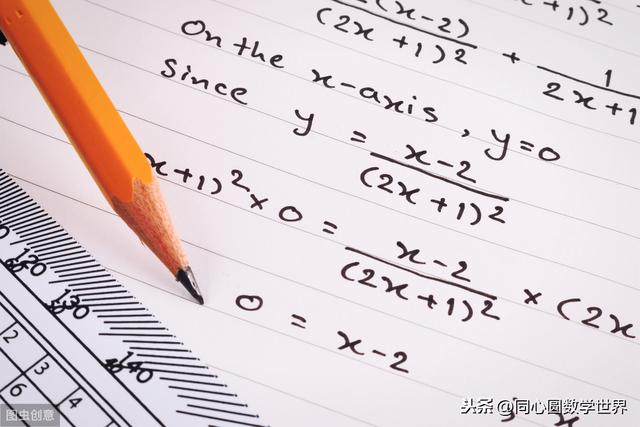 (x-2)
(2x+1)² + 1
x+1)²
2x+1
On the x-axis, y=0
Since y = x-2
(2x+1)²
x+1)² × 0 = x-2
(2x+1)² × (2x
0 = x-2
120
130
140
2
3
4
6
图虫创意
头条 @同心圆数学世界